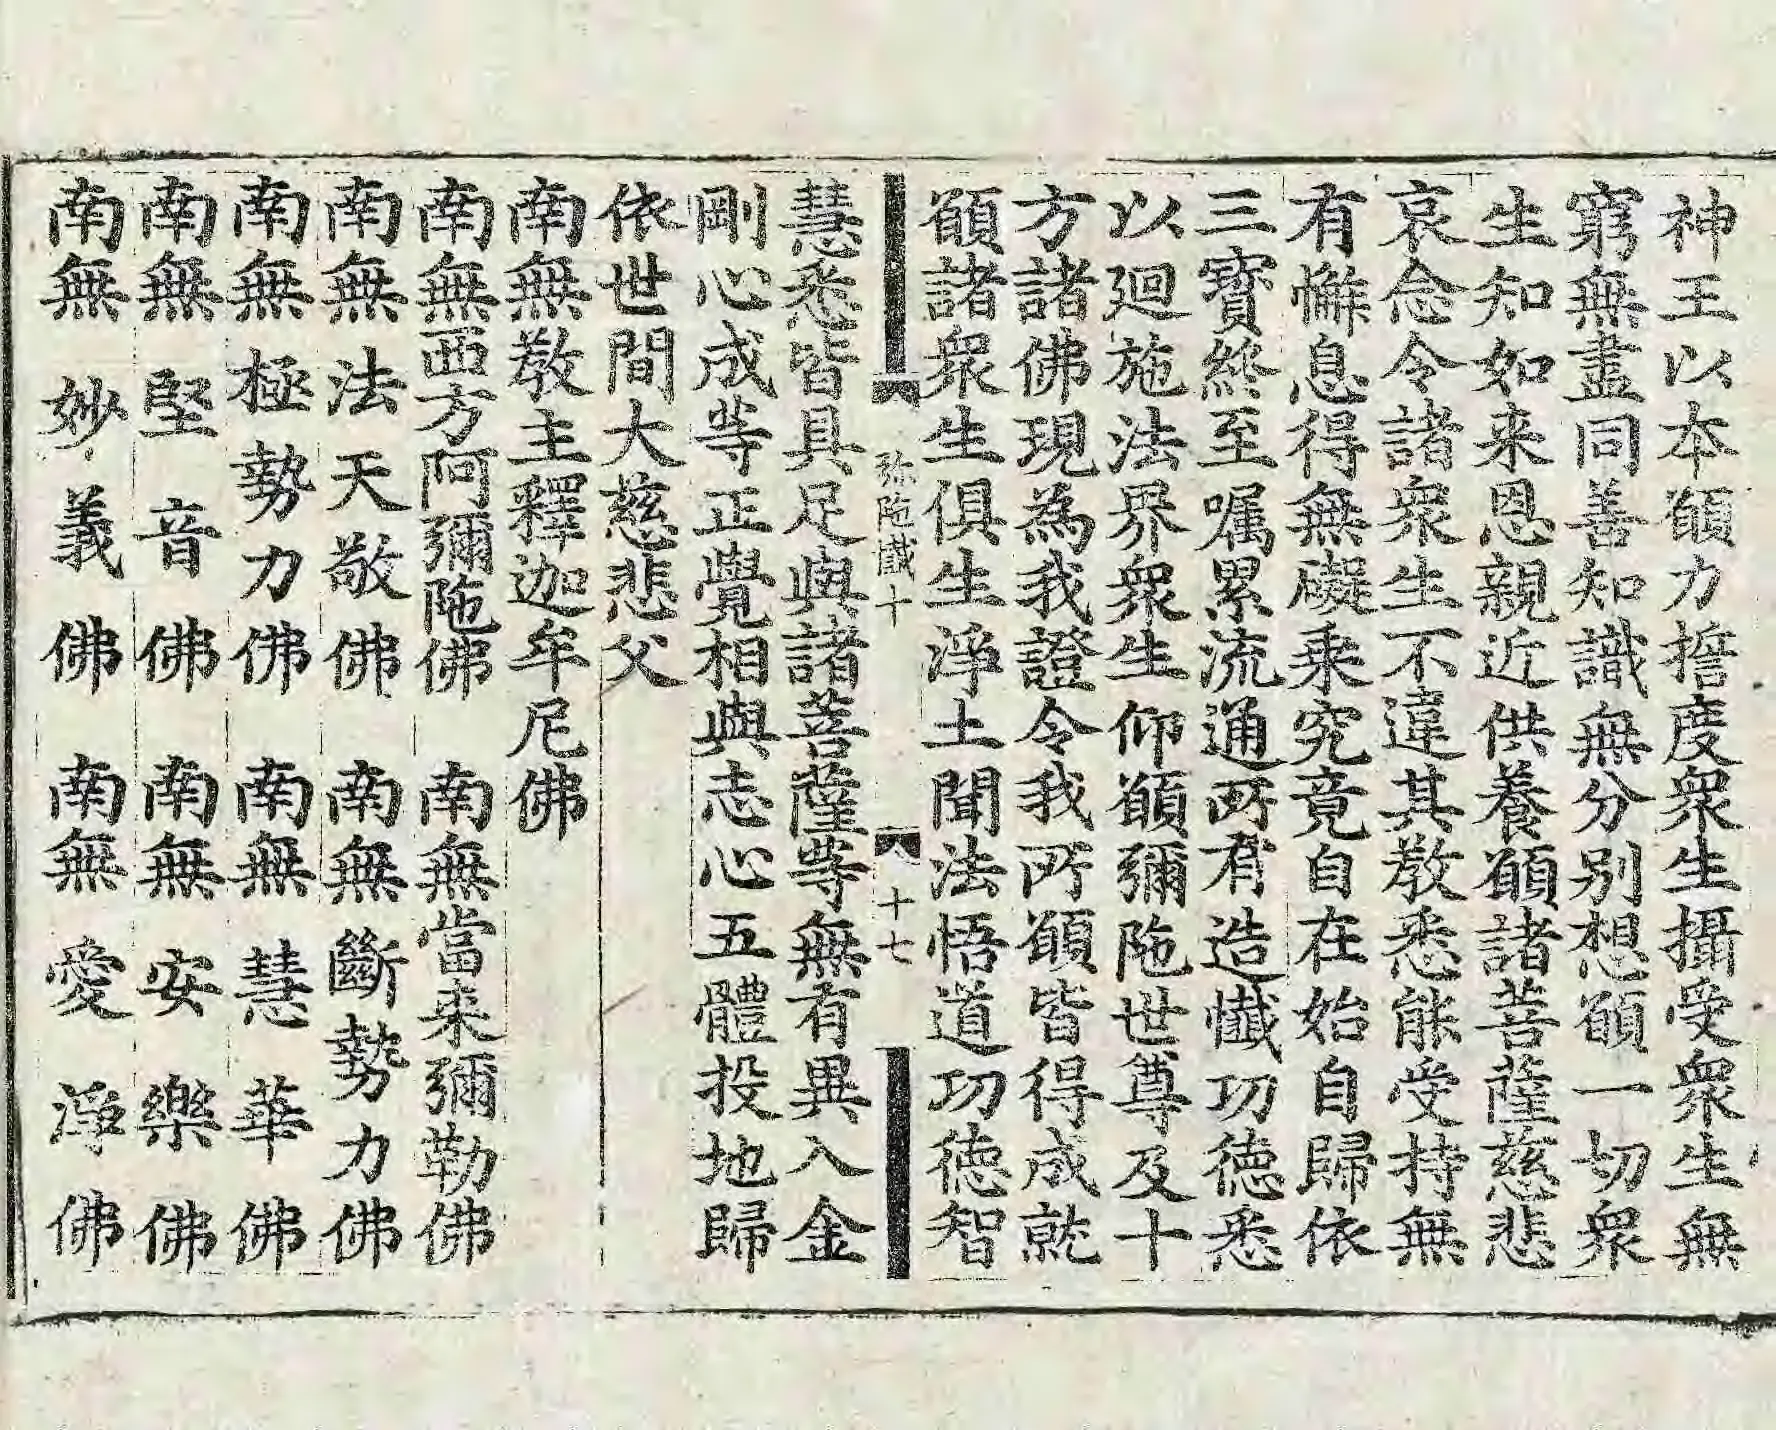 神王以本願力擔度衆生攝受衆生無
窮無盡同善知識無分别想願一切衆
生知如来恩親近供養願諸菩薩慈悲
哀念令諸衆生不違其教悉能受持無
有懈息得無礙乗究竟自在始自歸依
三寳終至嘱累流通所有造懴功德悉
以廻施法界衆生仰願彌陁世尊及十
方諸佛現為我證令我所願皆得成就
願諸衆生俱生淨土聞法悟道功德智
弥陁懴十
十七
慧悉皆具足與諸菩薩等無有異入金
剛心成等正覺相與志心五體投地歸
依世間大慈悲父
南無教主釋迦牟尼佛
南無西方阿彌陁佛 南無當来彌勒佛
南無法天敬佛 南無斷勢力佛
南無極勢力佛 南無慧華佛
南無堅音佛 南無安樂佛
南無妙義佛 南無愛淨佛